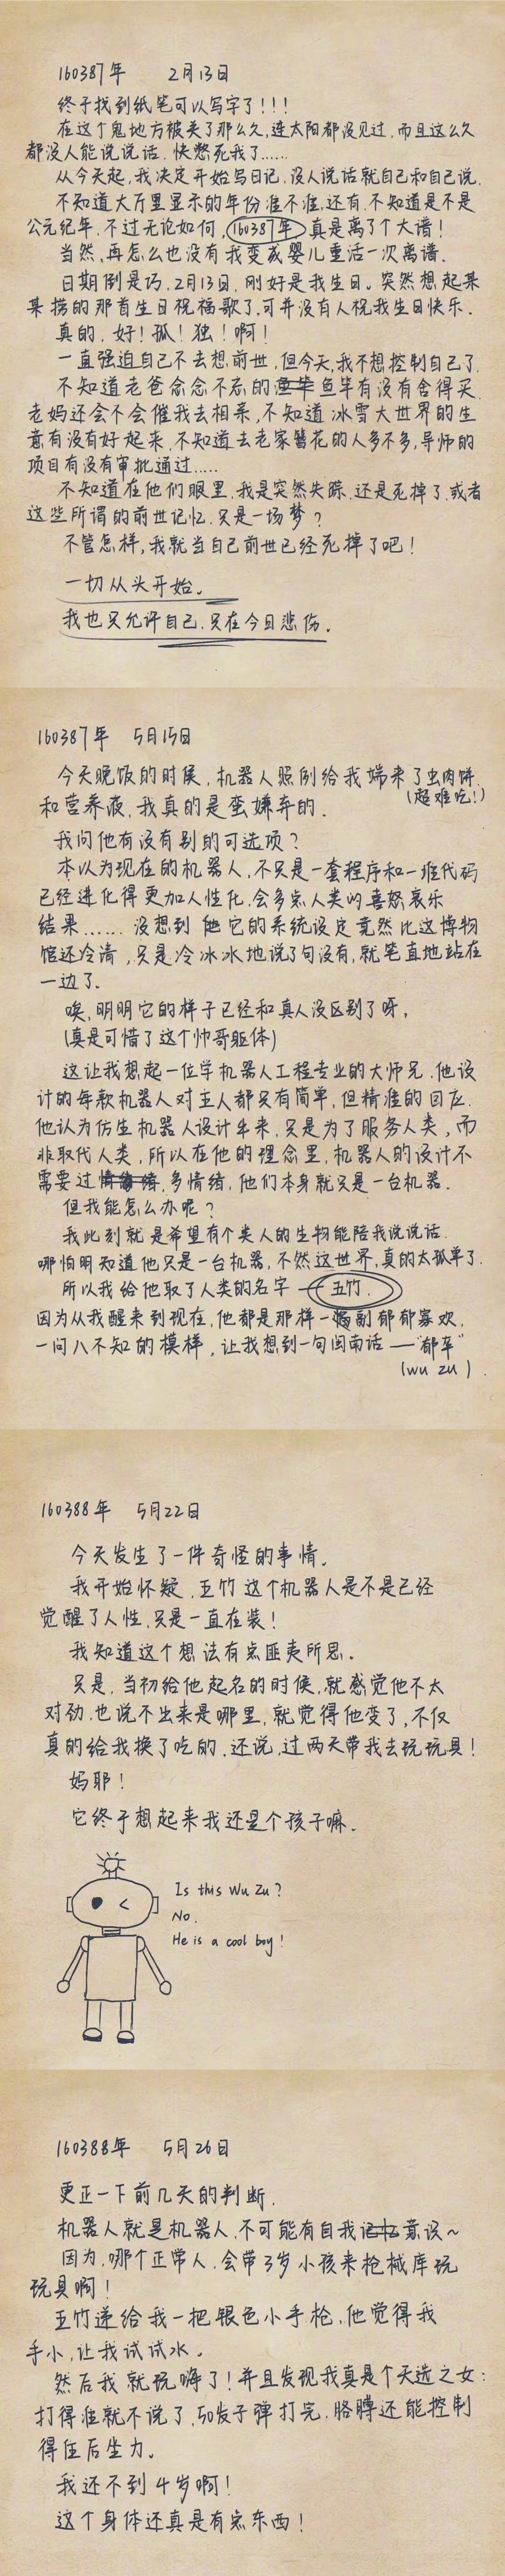 160387年 2月13日
终于找到纸笔可以写字了！！！
在这个鬼地方被关了那么久，连太阳都没见过，而且这么久
都没人能说说话，快憋死我了……
从今天起，我决定开始写日记，没人说话就自己和自己说.
不知道大厅里显示的年份准不准，还有，不知道是不是
公元纪年，不过无论如何，160387年，真是离了个大谱！
当然，再怎么也没有我变成婴儿重活一次离谱.
日期倒是巧，2月13日，刚好是我生日。突然想起某
某捞的那首生日祝福歌了，可并没有人祝我生日快乐.
真的，好！孤！独！啊！
一直强迫自己不去想前世，但今天，我不想控制自己了.
不知道老爸念念不忘的鱼竿有没有舍得买.
老妈还会不会催我去相亲，不知道冰雪大世界的生
意有没有好起来，不知道去老家簪花的人多不多，导师的
项目有没有审批通过……
不知道在他们眼里，我是突然失踪，还是死掉了，或者
这些所谓的前世记忆，只是一场梦？
不管怎样，我就当自己前世已经死掉了吧！
一切从头开始。
我也只允许自己，只在今日悲伤。
160387年 5月15日
今天晚饭的时候，机器人照例给我端来了虫肉饼
(超难吃!)
和营养液，我真的是蛮嫌弃的.
我问他有没有别的可选项？
本以为现在的机器人，不只是一套程序和一堆代码
已经进化得更加人性化，会多点人类的喜怒哀乐
结果……没想到它的系统设定竟然比这博物
馆还冷清，只是冷冰冰地说了句没有，就笔直地站在
一边了。
唉，明明它的样子已经和真人没区别了呀，
(真是可惜了这个帅哥躯体)
这让我想起一位学机器人工程专业的大师兄，他设
计的每款机器人对主人都只有简单，但精准的回应.
他认为仿生机器人设计出来，只是为了服务人类，而
非取代人类，所以在他的理念里，机器人的设计不
需要过多情绪，他们本身就只是一台机器.
但我能怎么办呢？
我此刻就是希望有个类人的生物能陪我说说话.
哪怕明知道他只是一台机器，不然这世界，真的太孤单了.
所以我给他取了人类的名字——五竹.
因为从我醒来到现在，他都是那样一副郁郁寡欢，
一问八不知的模样，让我想到一句闽南话——“郁卒”
(wu zu).
160388年 5月22日
今天发生了一件奇怪的事情。
我开始怀疑，五竹这个机器人是不是已经
觉醒了人性，只是一直在装！
我知道这个想法有点匪夷所思。
只是，当初给他起名的时候，就感觉他不太
对劲，也说不出来是哪里，就觉得他变了，不仅
真的给我换了吃的，还说，过两天带我去玩玩具！
妈耶！
它终于想起来我还是个孩子嘛.
Is this Wu Zu?
No.
He is a cool boy!
160388年 5月26日
更正一下前几天的判断.
机器人就是机器人，不可能有自我意识~
因为，哪个正常人，会带3岁小孩来枪械库玩
玩具啊！
五竹递给我一把银色小手枪，他觉得我
手小，让我试试水。
然后我就玩嗨了！并且发现我真是个天选之女：
打得准就不说了，50发子弹打完，胳膊还能控制
得住后坐力.
我还不到4岁啊！
这个身体还真是有点东西！